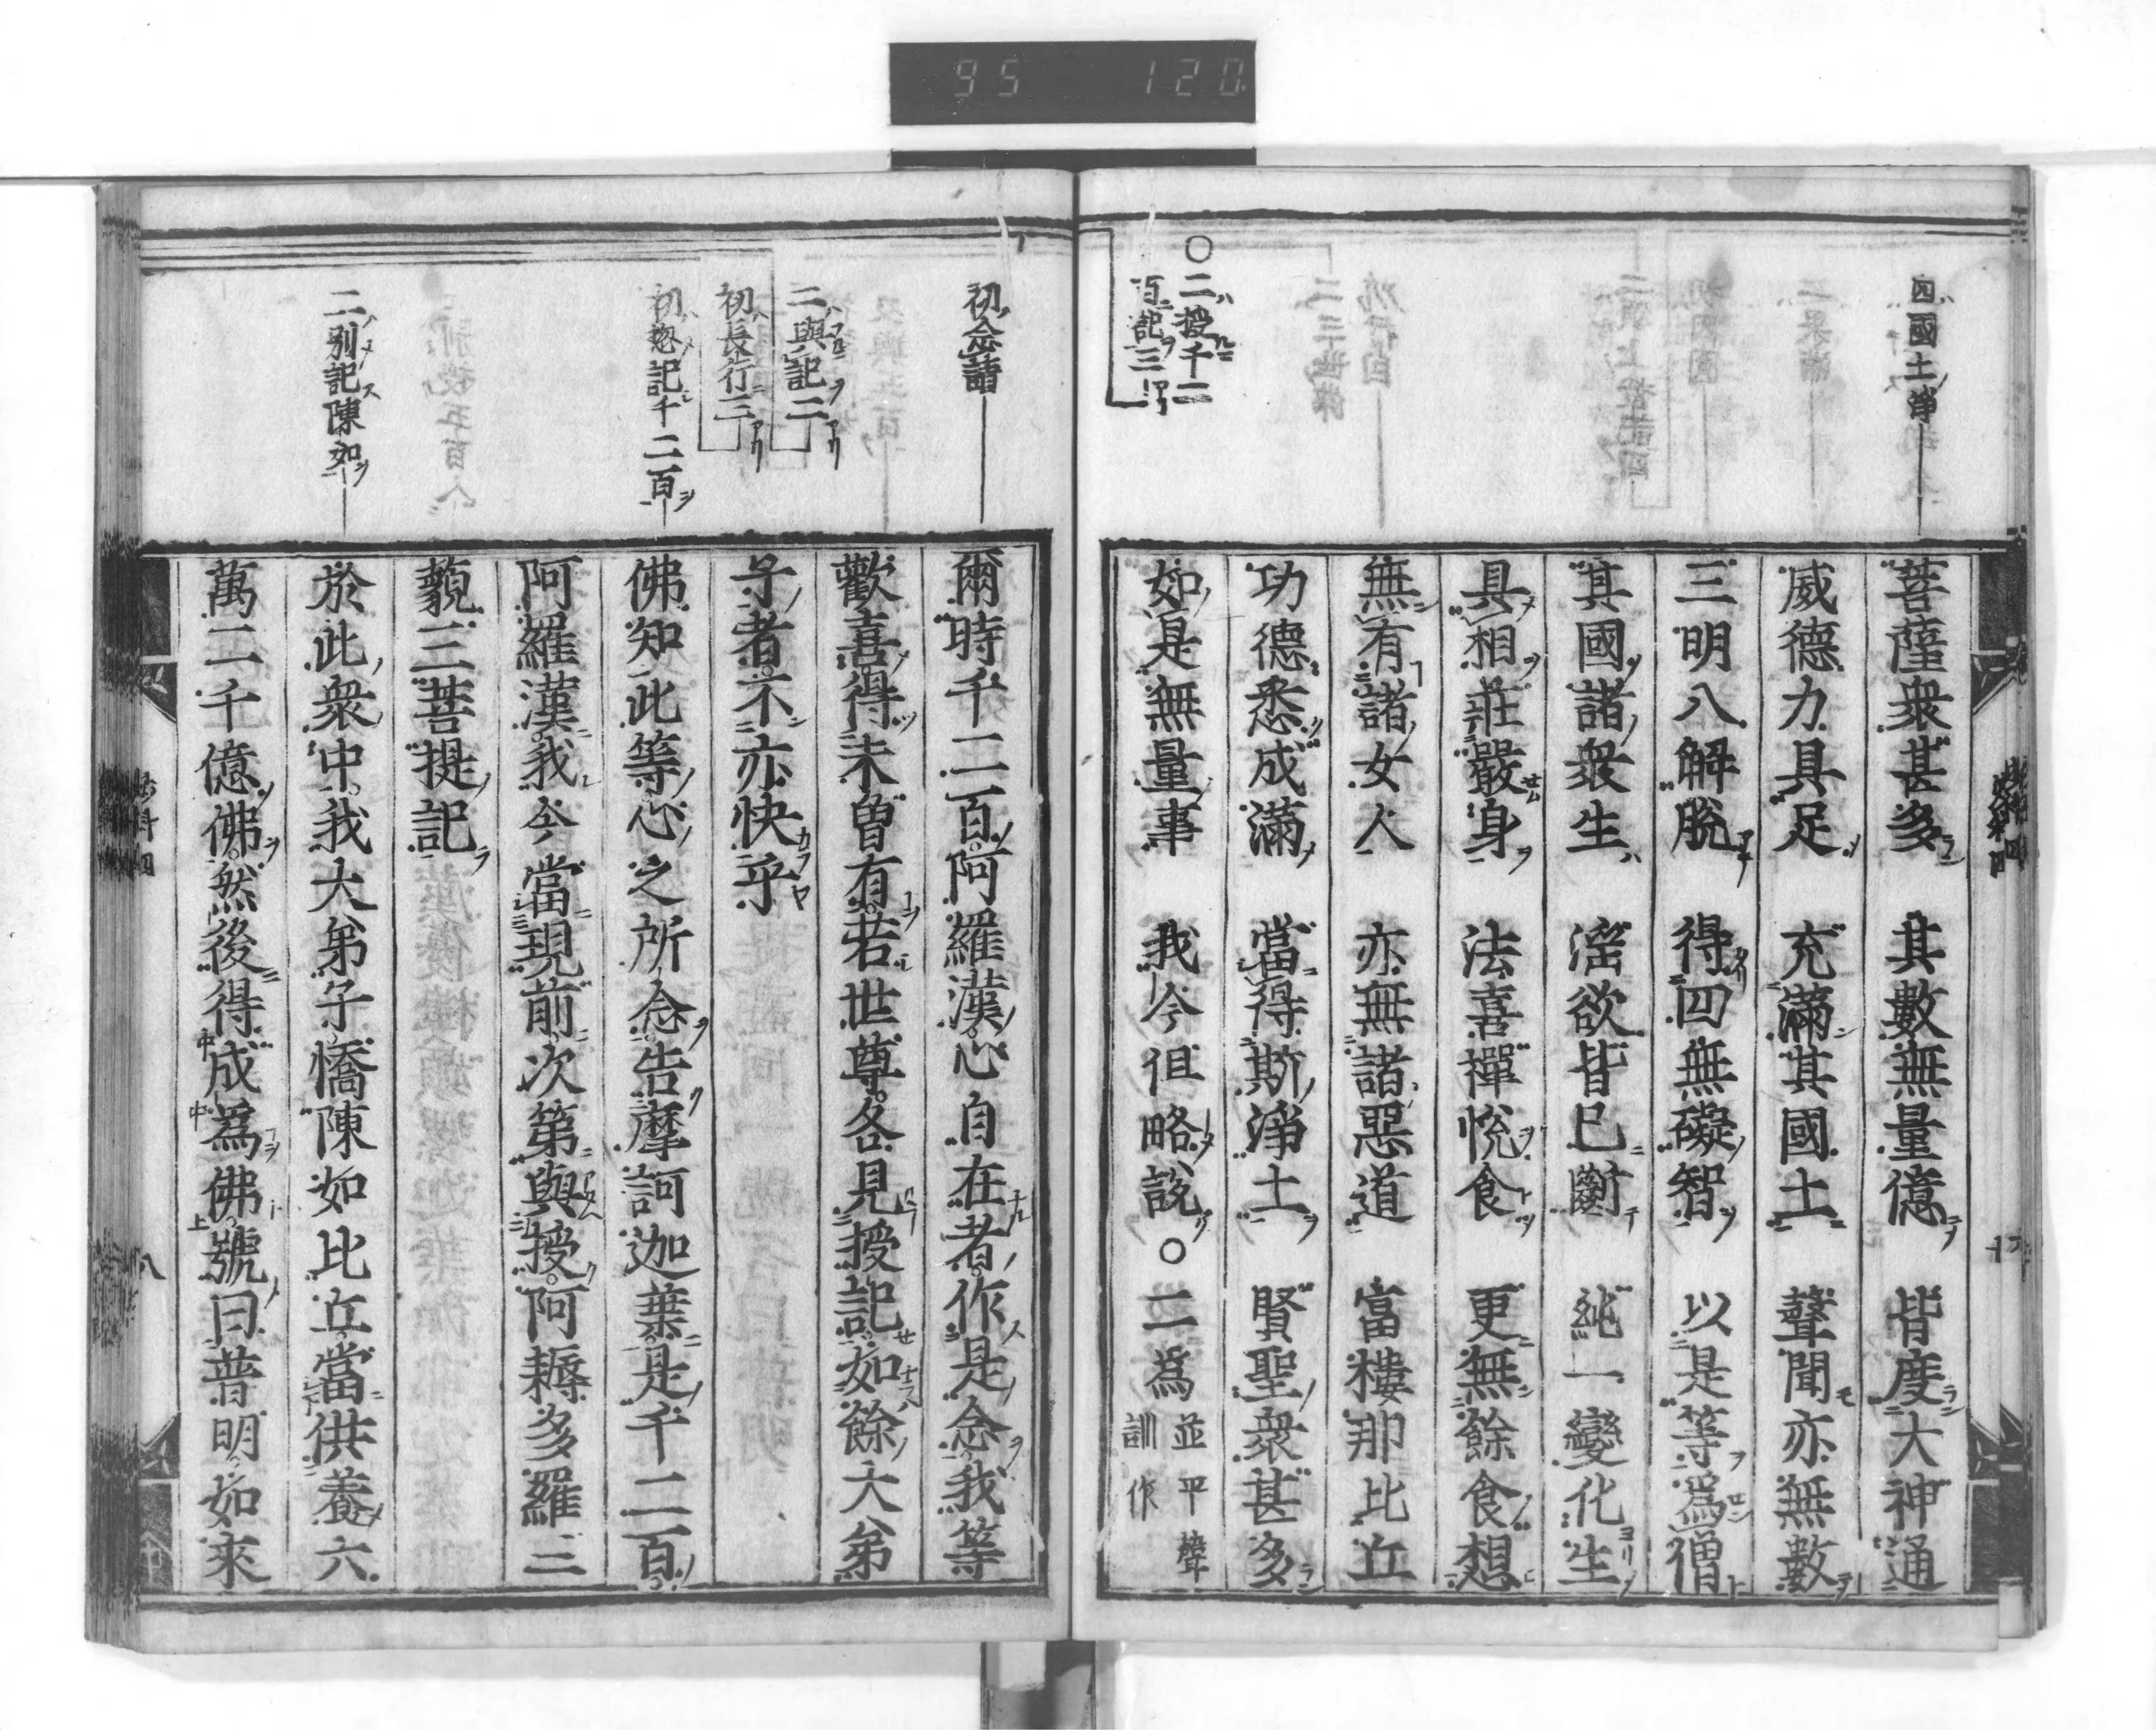 95 120
四國土淨
菩薩衆甚多 其數無量億 皆度大神通
威德力具足 充滿其國土 聲聞亦無數
三明八解脫 得四無礙智 以是等爲僧
其國諸衆生 淫欲皆已斷 純一變化生
具相莊嚴身 法喜禪悅食 更無餘食想
無有諸女人 亦無諸惡道 富樓那比丘
功德悉成滿 當得斯淨土 賢聖衆甚多
○二授千二
百記三
如是無量事 我今但略說 ○二爲
並平聲
訓作
初念請
爾時千二百阿羅漢心自在者作是念我等
歡喜得未曾有若世尊各見授記如餘大弟
二與記二
初長行三
子者不亦快乎
初揔記千二百
佛知此等心之所念告摩訶迦葉是千二百
阿羅漢我今當現前次第與授阿耨多羅三
藐三菩提記
二別記陳如
於此衆中我大弟子憍陳如比丘當供養六
萬二千億佛然後得成爲佛號曰普明如來
八